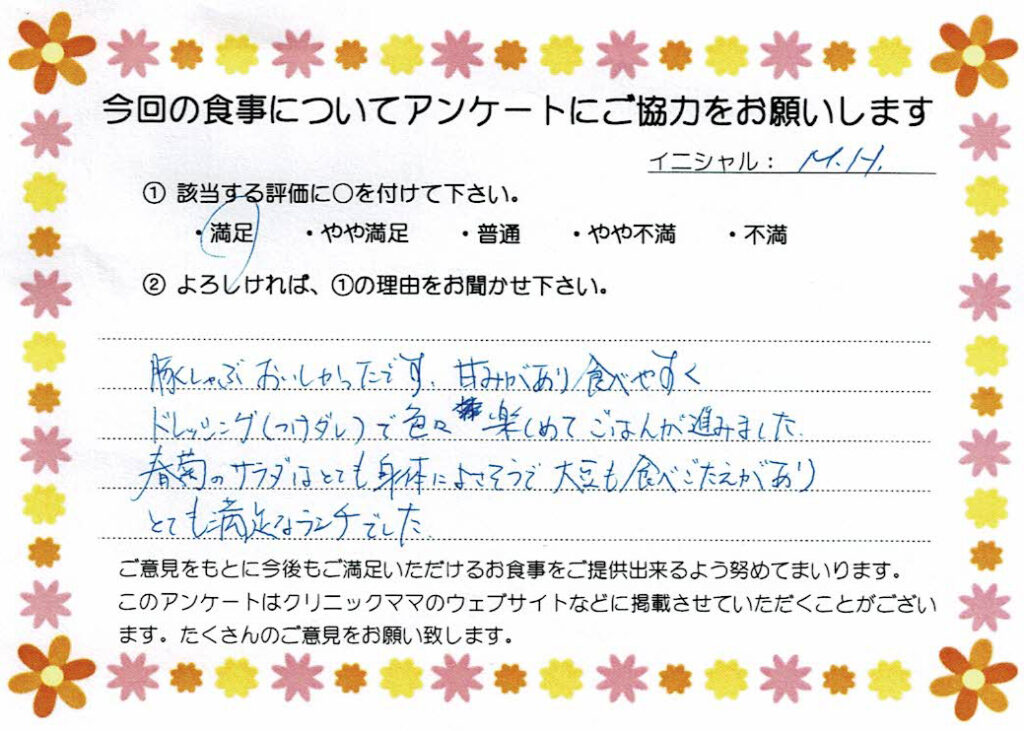 今回の食事についてアンケートにご協力をお願いします
イニシャル： M.H.
① 該当する評価に〇を付けて下さい。
・満足 ・やや満足 ・普通 ・やや不満 ・不満
② よろしければ、①の理由をお聞かせ下さい。
豚しゃぶおいしかったです。甘みがあり食べやすく
ドレッシング(つけダレ)で色々楽しめてごはんが進みました。
春菊のサラダはとても身体によさそうで大豆も食べごたえがあり
とても満足なランチでした。
ご意見をもとに今後もご満足いただけるお食事をご提供出来るよう努めてまいります。
このアンケートはクリニックママのウェブサイトなどに掲載させていただくことがござい
ます。たくさんのご意見をお願い致します。